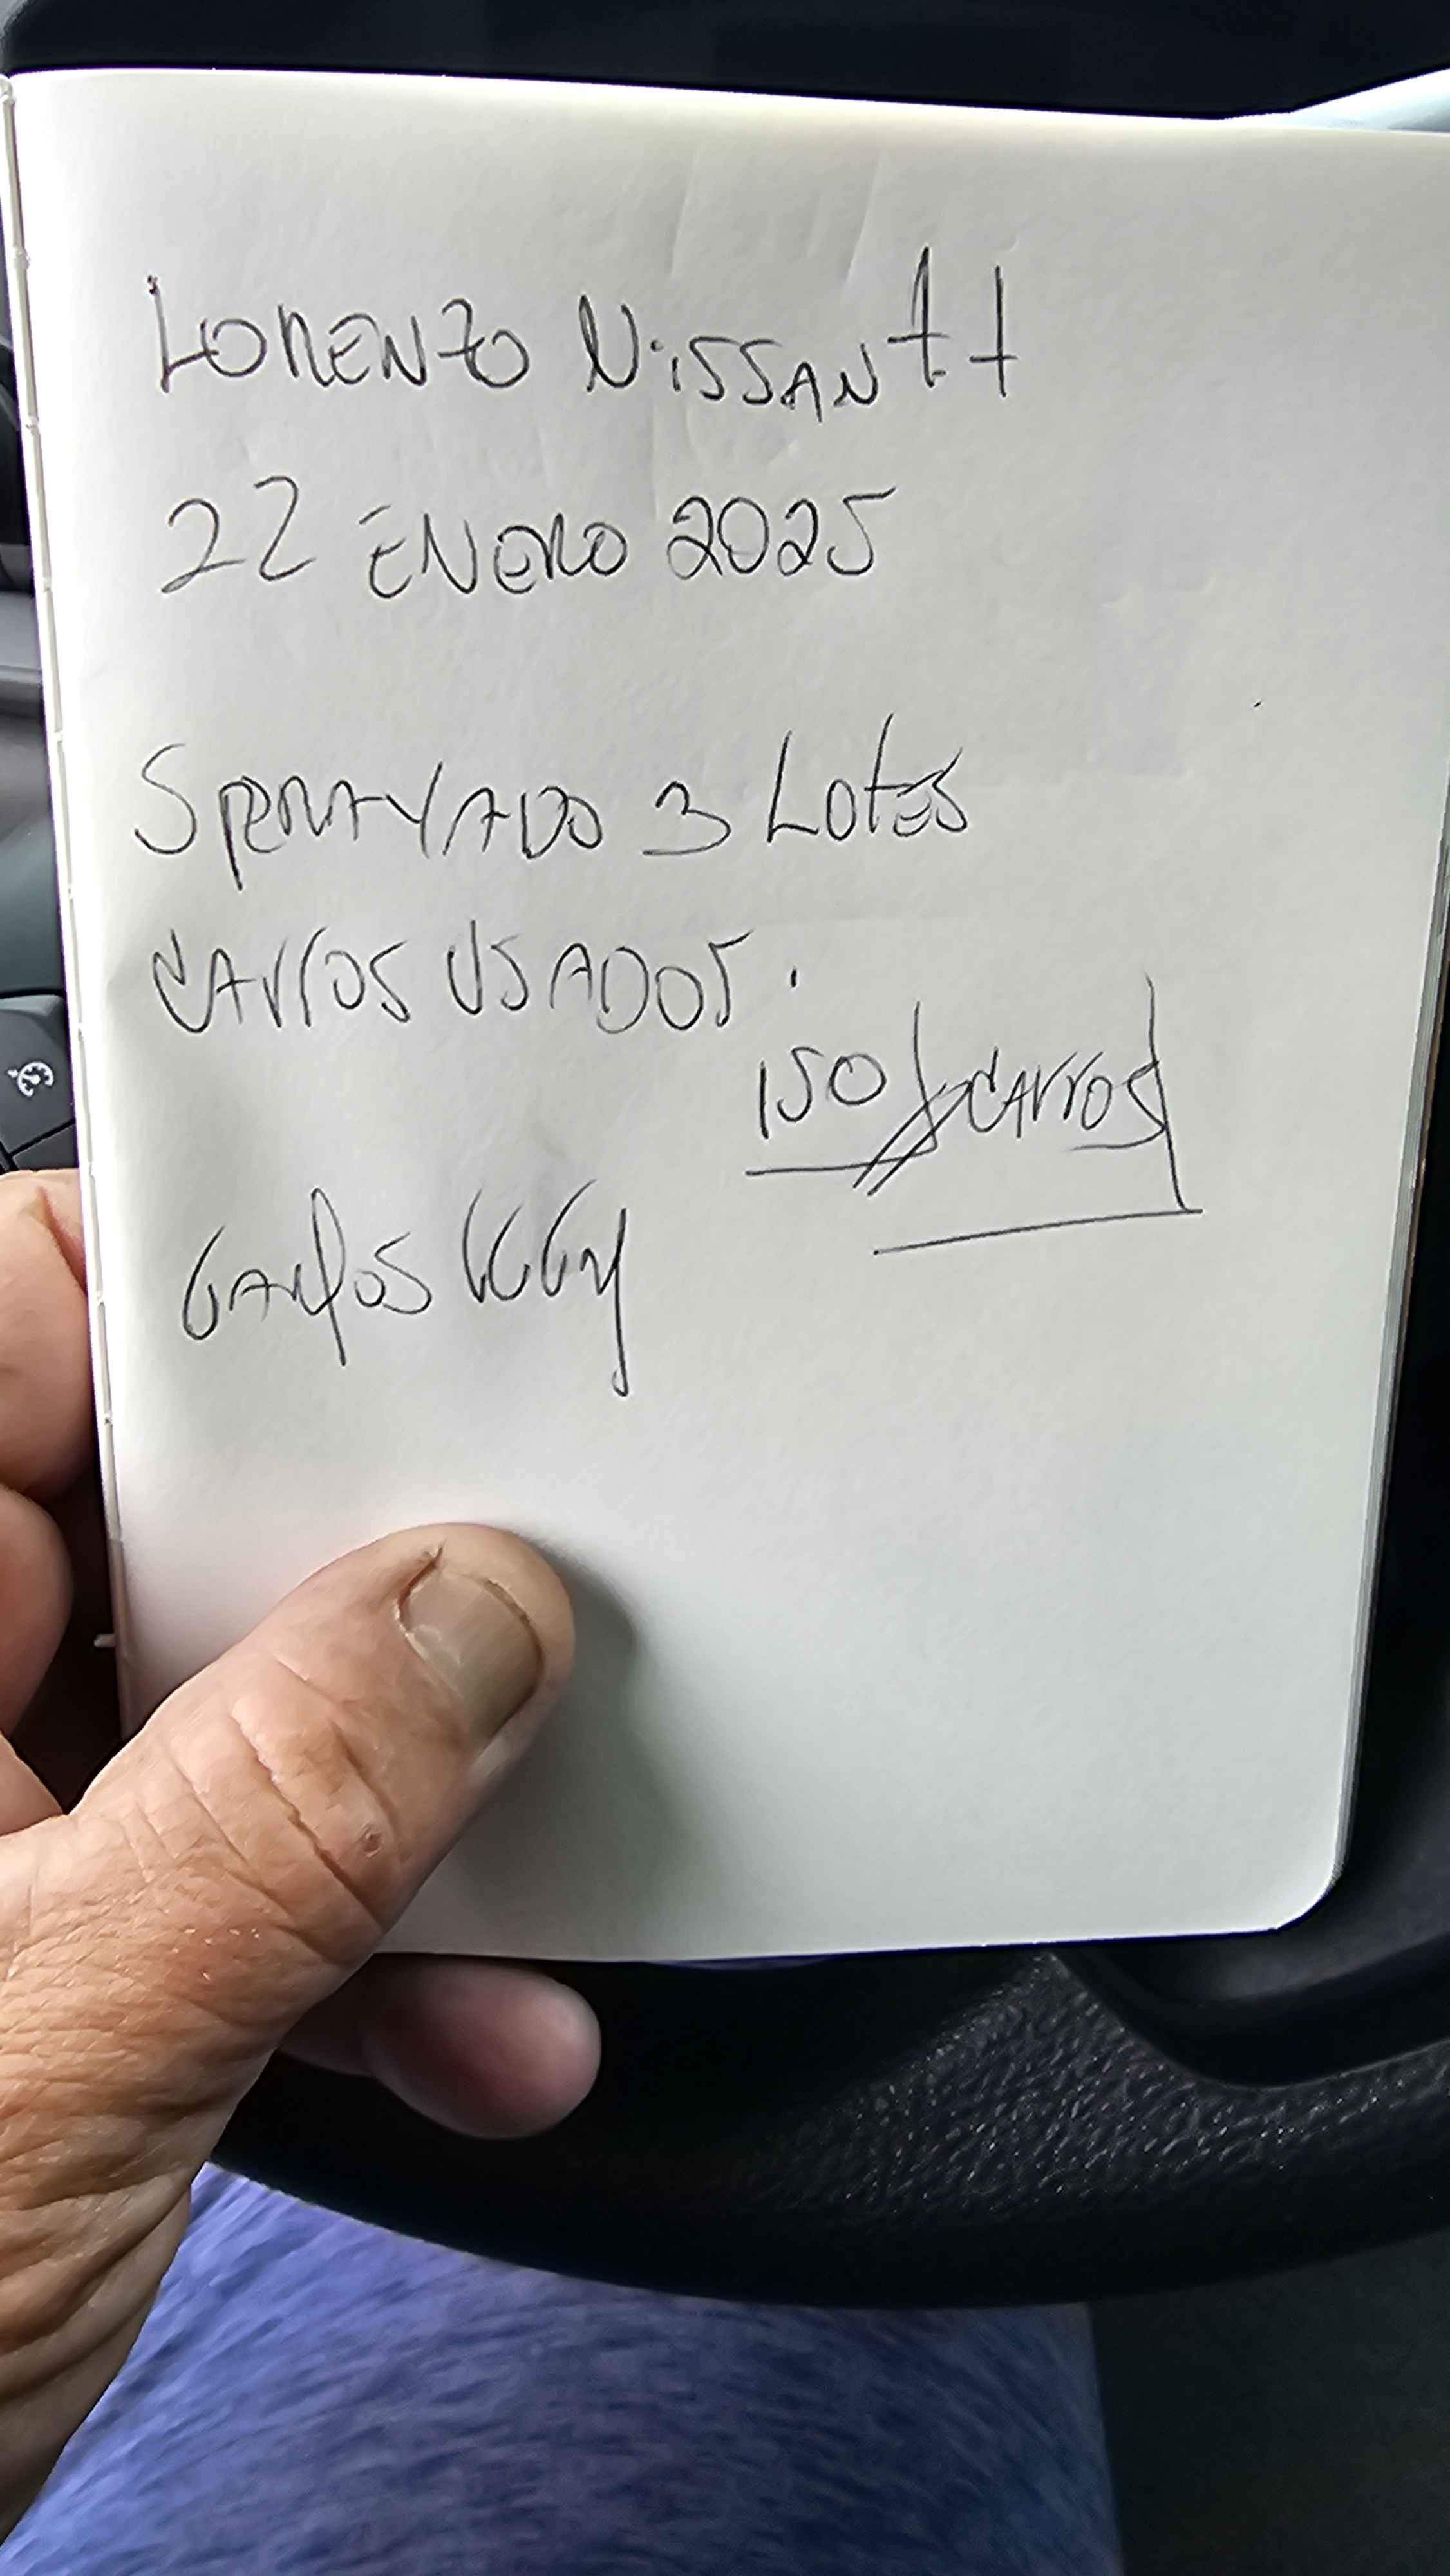 LORENZO NiSSAN ++
22 ENERO 2025
SPERAYADO 3 LOTES
CARROS USADOS.
150 CARROS
CARLOS